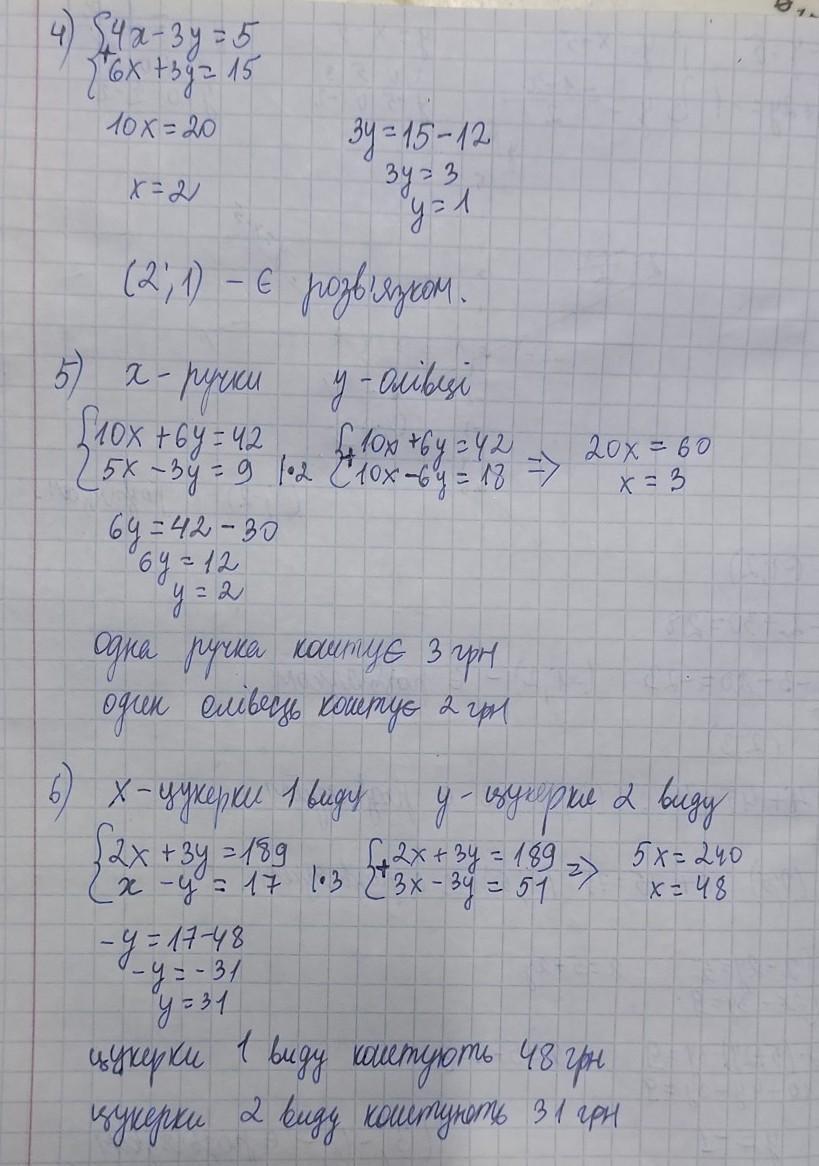 4) {4x - 3y = 5
+ {6x + 3y = 15
10x = 20
3y = 15 - 12
3y = 3
x = 2
y = 1
(2; 1) - є розв'язком.
5) x - ручки y - олівці
{10x + 6y = 42 {10x + 6y = 42 20x = 60
{5x - 3y = 9 |·2 + {10x - 6y = 18 => x = 3
6y = 42 - 30
6y = 12
y = 2
одна ручка коштує 3 грн
один олівець коштує 2 грн
6) x - цукерки 1 виду y - цукерки 2 виду
{2x + 3y = 189 {2x + 3y = 189 => 5x = 240
{x - y = 17 |·3 + {3x - 3y = 51 x = 48
-y = 17-48
-y = -31
y = 31
цукерки 1 виду коштують 48 грн
цукерки 2 виду коштують 31 грн